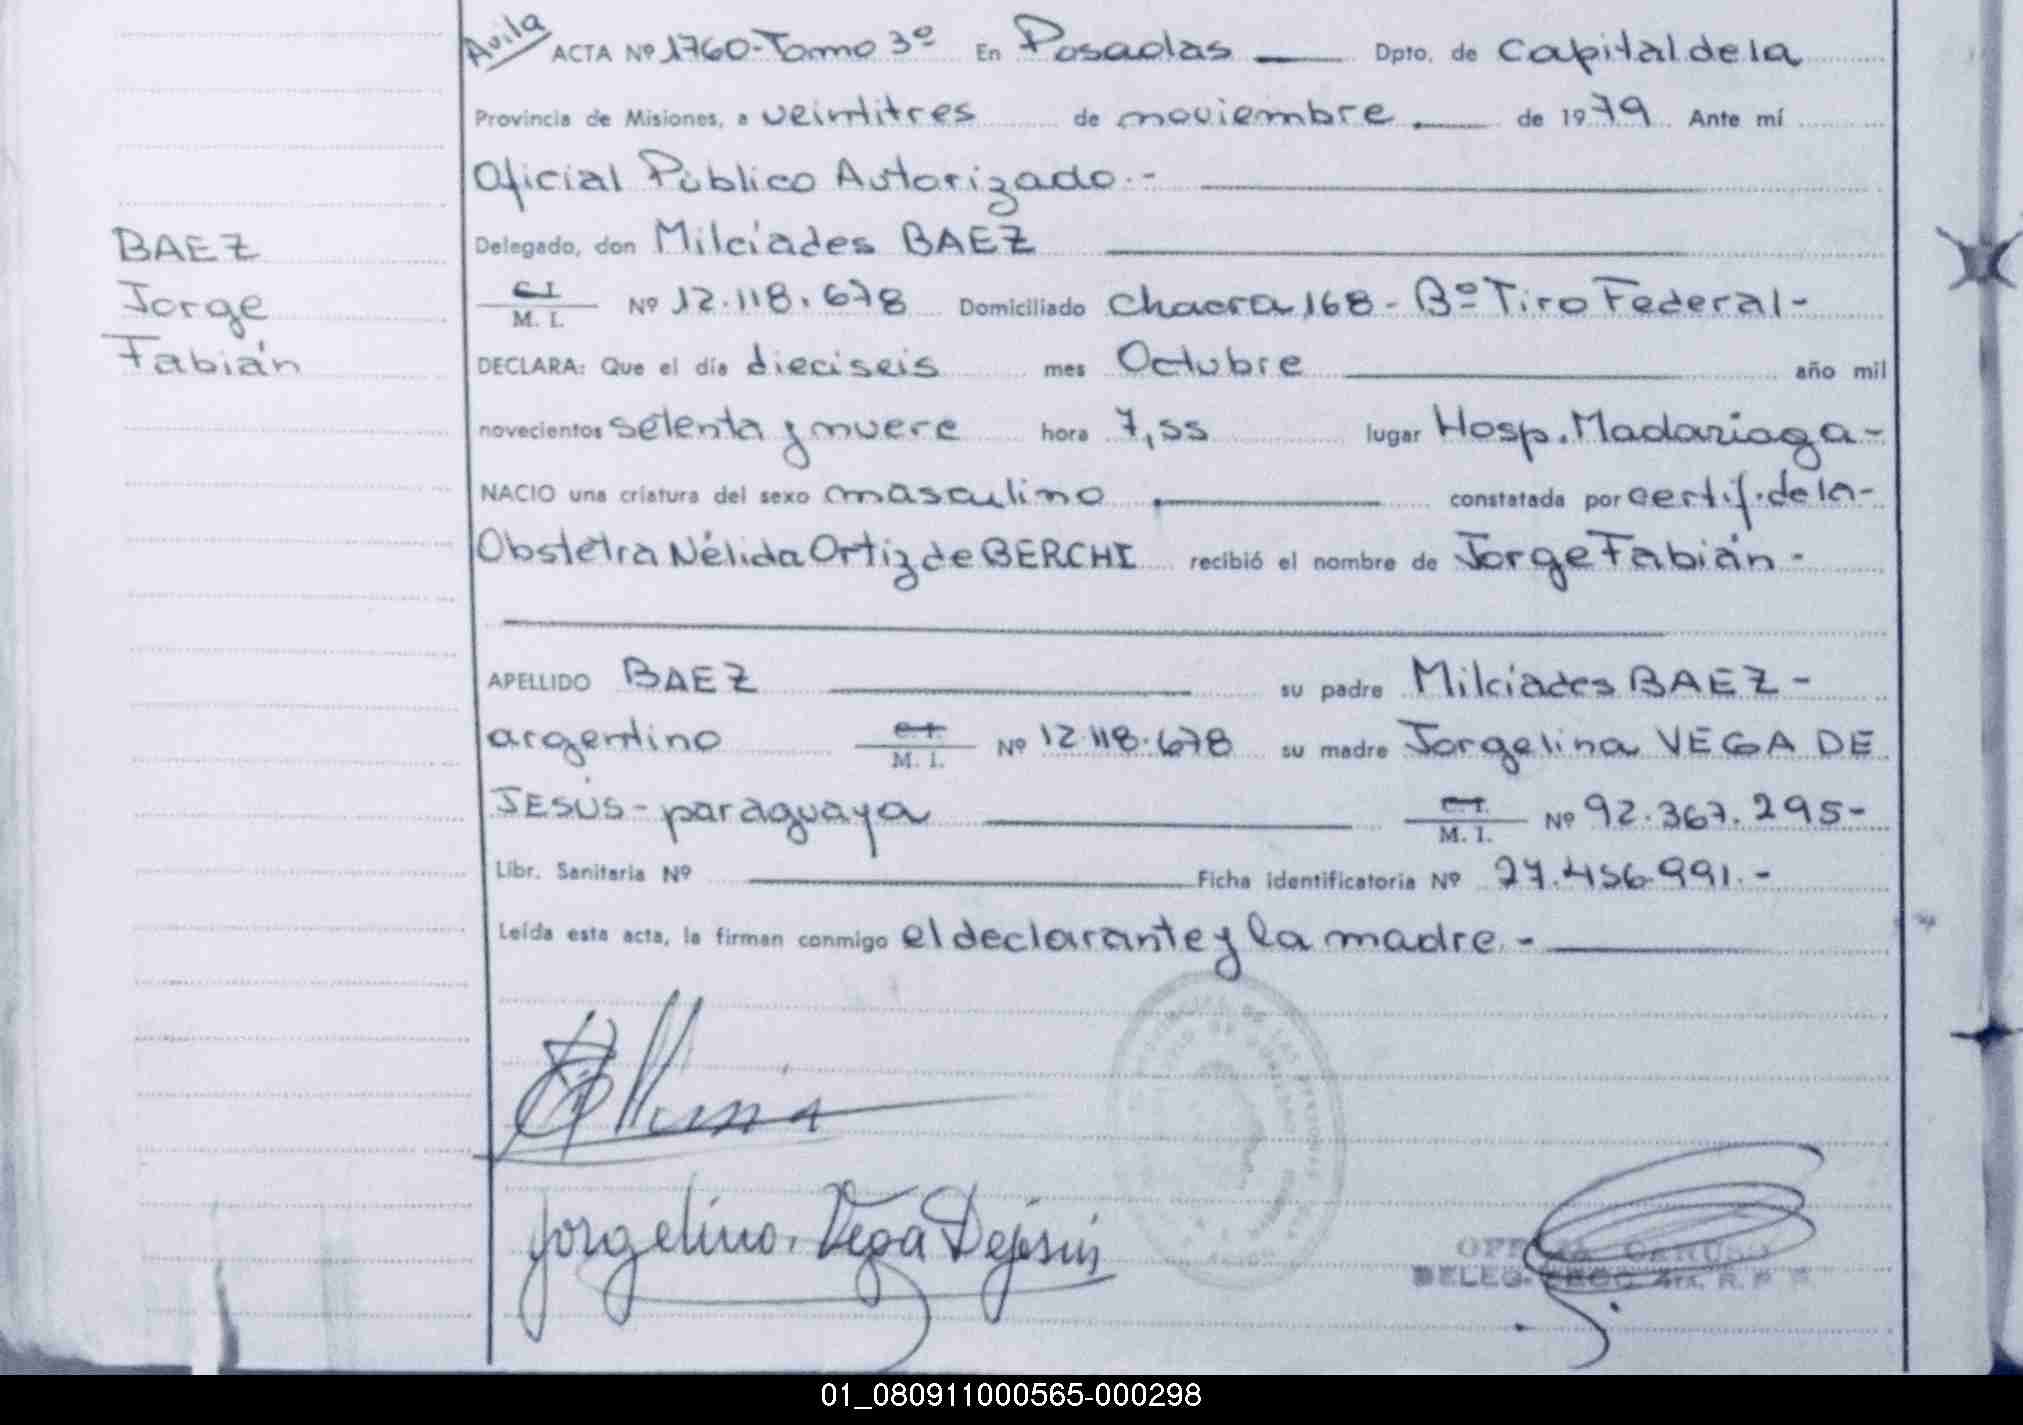 Avila ACTA Nº 1760-Tomo 3º En Posadas Dpto. de Capital de la
Provincia de Misiones, a veintitres de noviembre de 1979 Ante mí
Oficial Público Autorizado.-
Delegado, don Milciades BAEZ
C.I. M. I. Nº 12.118.678 Domiciliado Chacra 168 - Bº Tiro Federal -
DECLARA: Que el día dieciseis mes Octubre año mil
novecientos setenta y nueve hora 7,55 lugar Hosp. Madariaga -
NACIO una criatura del sexo masculino constatada por certif. de la -
Obstetra Nélida Ortiz de BERCHI recibió el nombre de Jorge Fabián -
BAEZ
Jorge
Fabián
APELLIDO BAEZ su padre Milciades BAEZ -
argentino C.I. M. I. Nº 12.118.678 su madre Jorgelina VEGA DE
JESÚS - paraguaya C.I. M. I. Nº 92.367.295-
Libr. Sanitaria Nº Ficha identificatoria Nº 27.456.991.-
Leída esta acta, la firman conmigo el declarante y la madre.-
Jorgelina Vega Dejesus
01_080911000565-000298